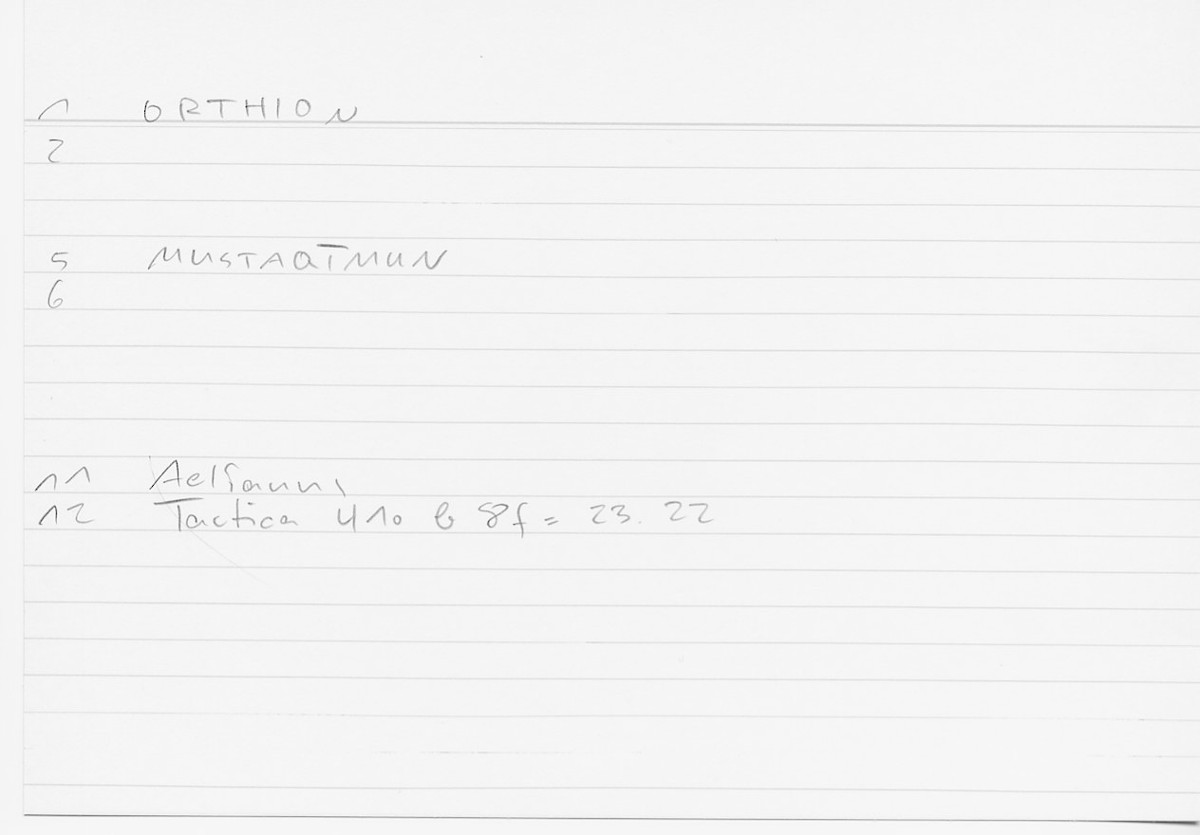 1 ORTHION
2
5 MUSTAQĪMUN
6
11 Aelianus
12 Tactica 410 b 8f = 23.22